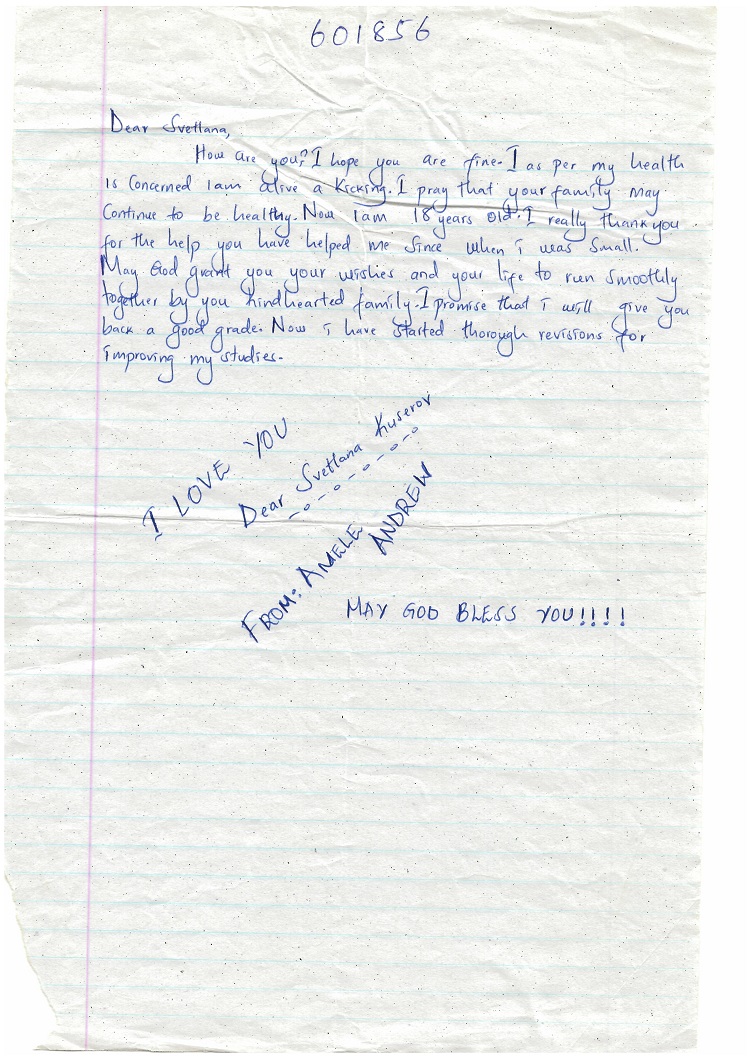 601856
Dear Svetlana,
How are you? I hope you are fine. I as per my health
is Concerned I am alive a Kicking. I pray that your family may
Continue to be healthy. Now I am 18 years old. I really thank you
for the help you have helped me since when i was small.
May God grant you your wishes and your life to run smoothly
together by you kindhearted family. I promise that i will give you
back a good grade. Now i have started thorough revisions for
improving my studies.
I LOVE YOU
Dear Svetlana Kuserov
FROM: AMELE ANDREW
MAY GOD BLESS YOU!!!!